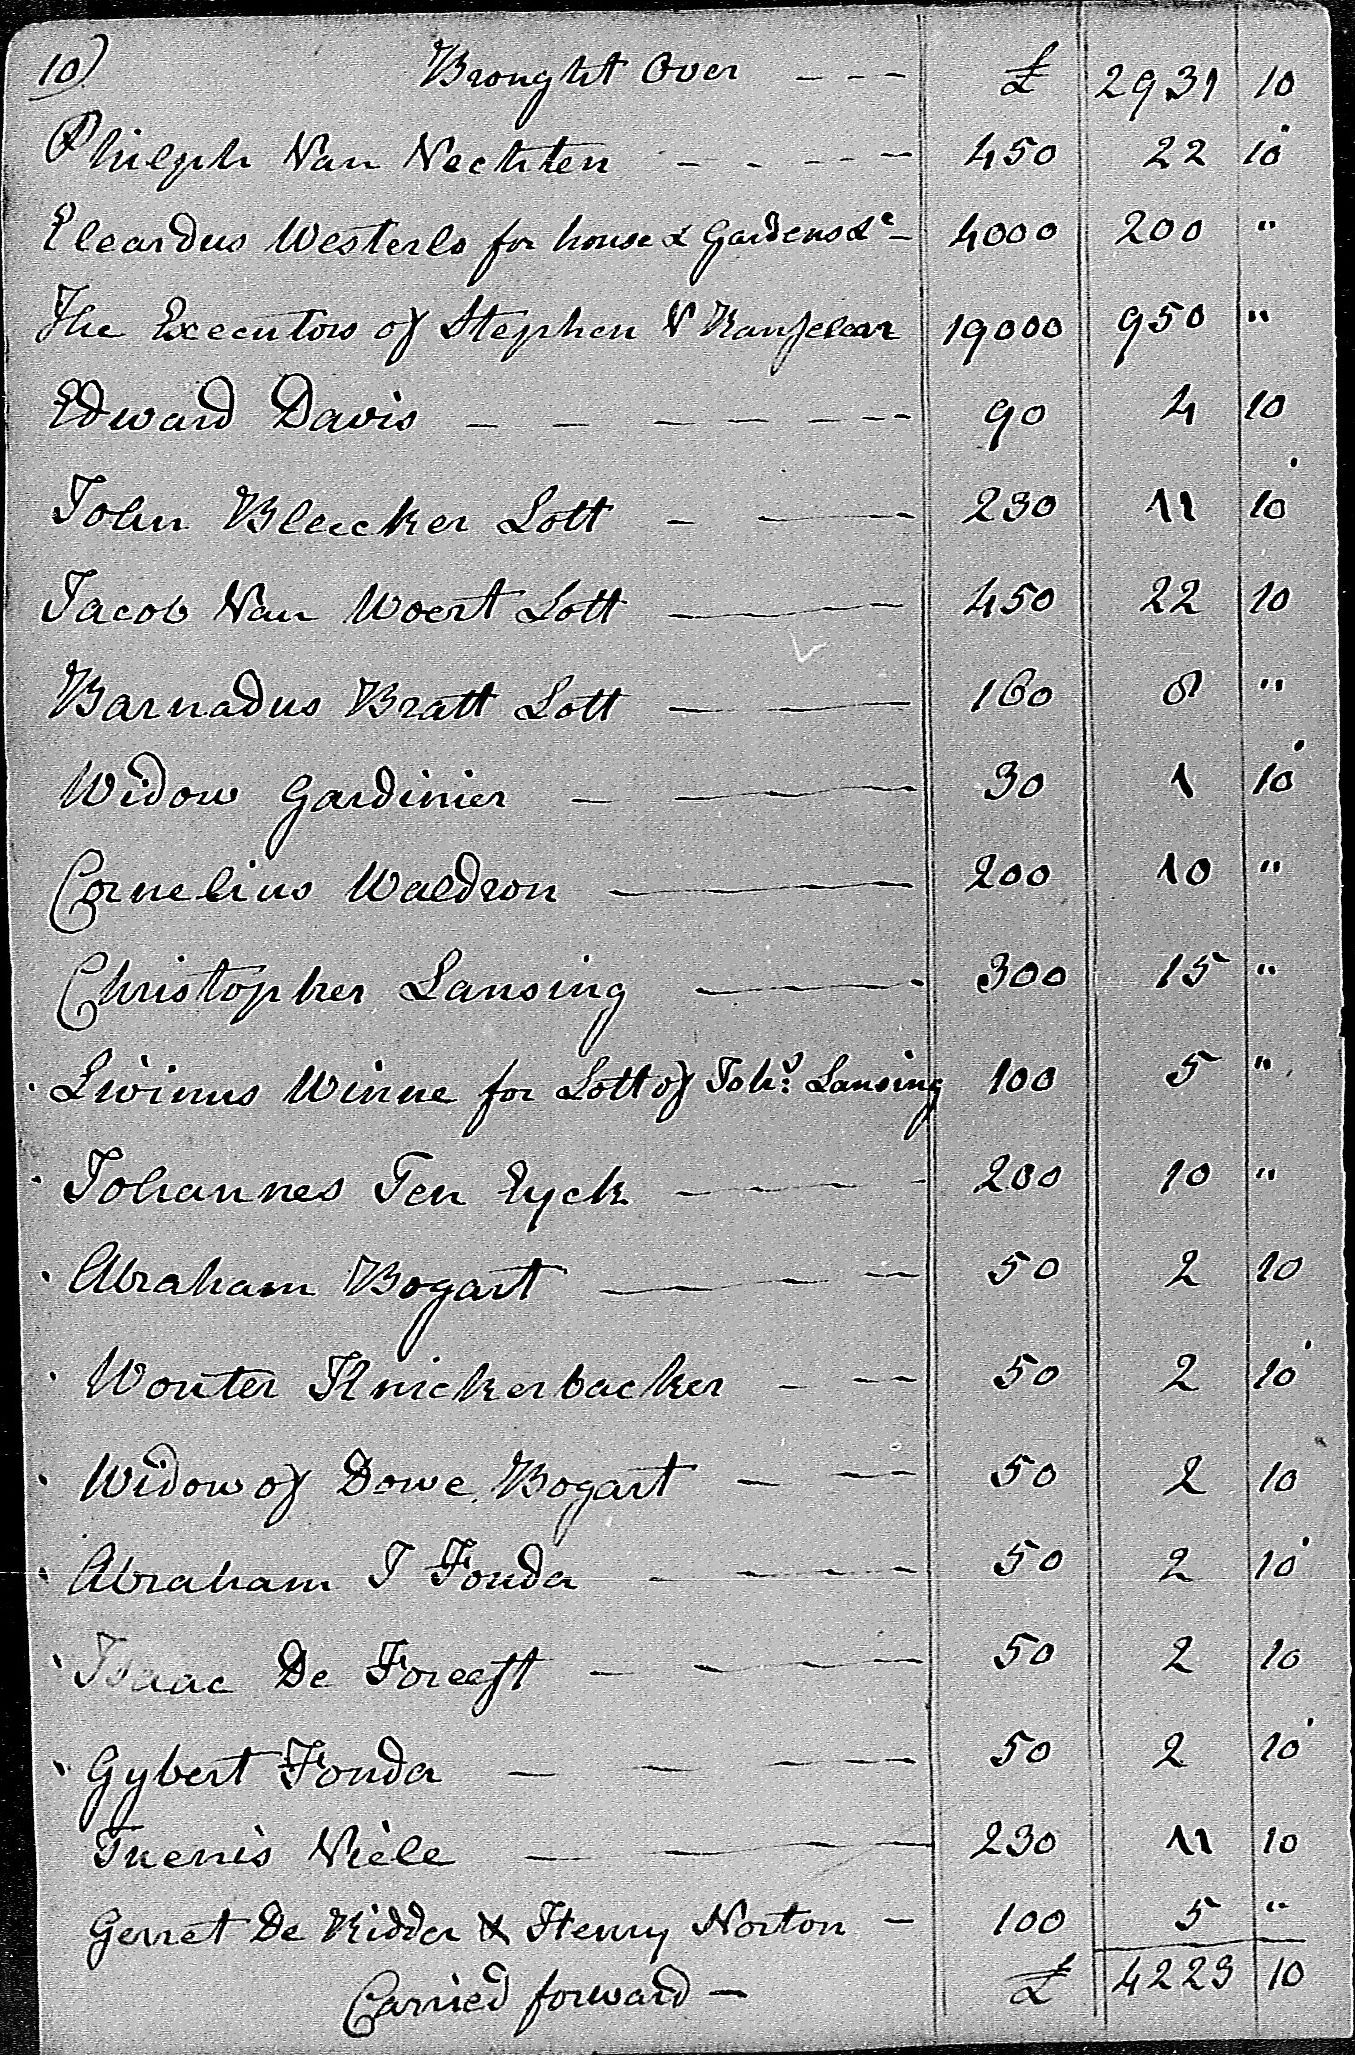 10) Brought Over - - - £ 2931 10
Philiph Van Nechten - - - - - 450 22 10
Eleardus Westerlo for house & Gardens &c - 4000 200 "
The Executors of Stephen V Ranselear 19000 950 "
Edward Davis - - - - - - - 90 4 10
John Bleecker Lott - - - - 230 11 10
Jacob Van Woert Lott - - - - 450 22 10
Barnadus Bratt Lott - - - - 160 8 "
Widow Gardinier - - - - - 30 1 10
Cornelius Waldron - - - - 200 10 "
Christopher Lansing - - - - 300 15 "
Livinus Winne for Lott of Johs. Lansing 100 5 "
Johannes Ten Eyck - - - - 200 10 "
Abraham Bogart - - - - - 50 2 10
Wouter Knickerbacker - - - 50 2 10
Widow of Dowe Bogart - - - 50 2 10
Abraham J Fonda - - - - 50 2 10
Isaac De Foreest - - - - - 50 2 10
Gybert Fonda - - - - - 50 2 10
Tuenis Viele - - - - - 230 11 10
Gerret De Ridder & Henry Norton - 100 5 "
Carried forward - £ 4223 10